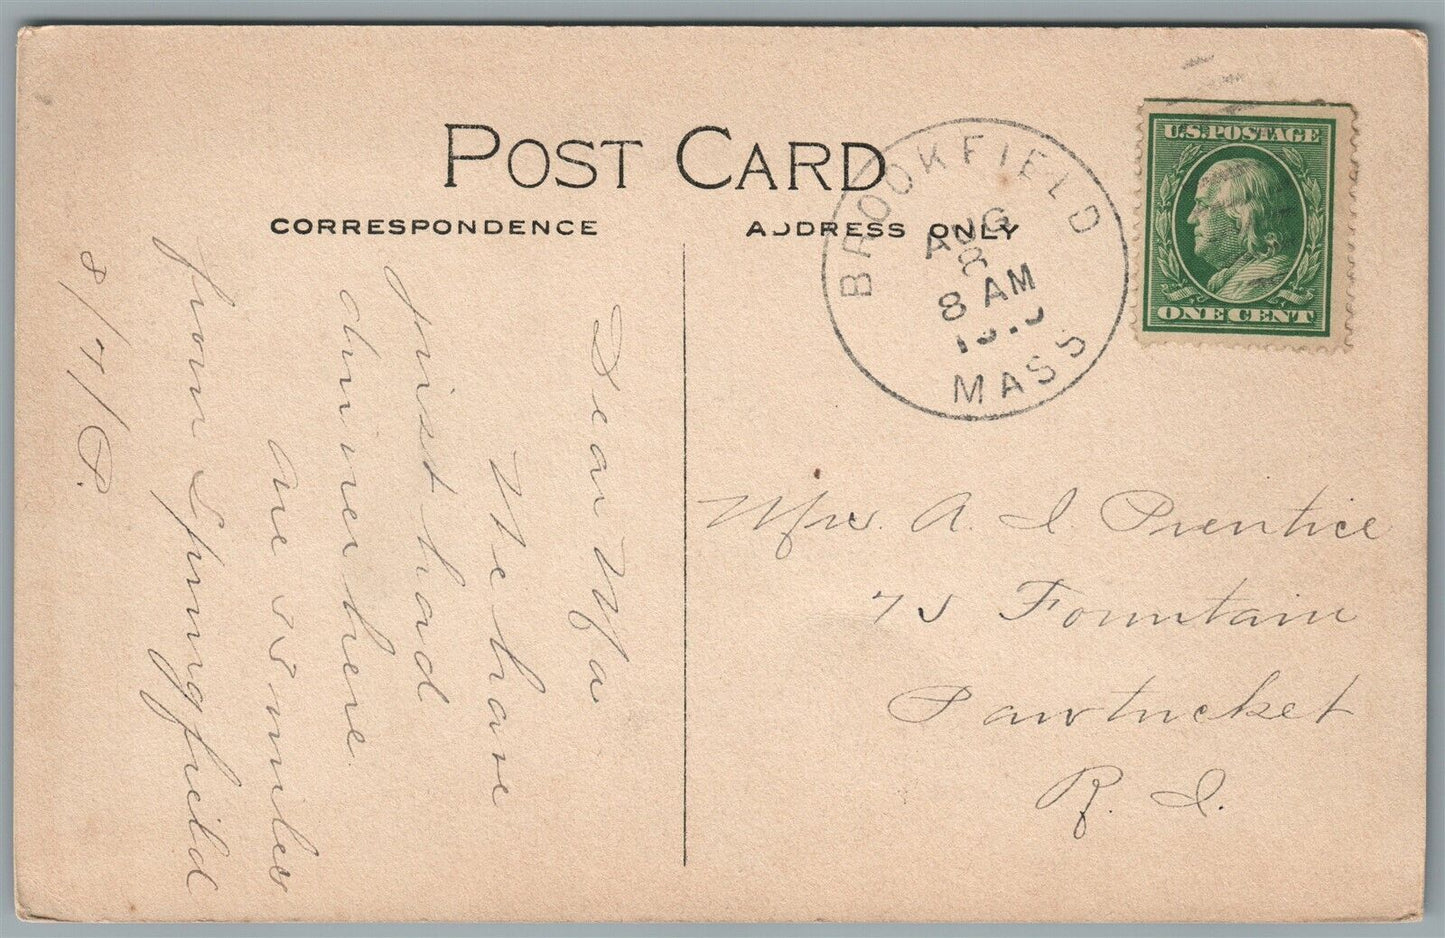 POST CARD
CORRESPONDENCE
ADDRESS ONLY
BROOKFIELD
AUG
8
8 AM
MASS
U.S. POSTAGE
ONE CENT
Dear Ma
We have
just had
dinner here.
are 25 miles
from Springfield
8/7/
Mrs. A. I. Prentice
75 Fountain
Pawtucket
R. I.